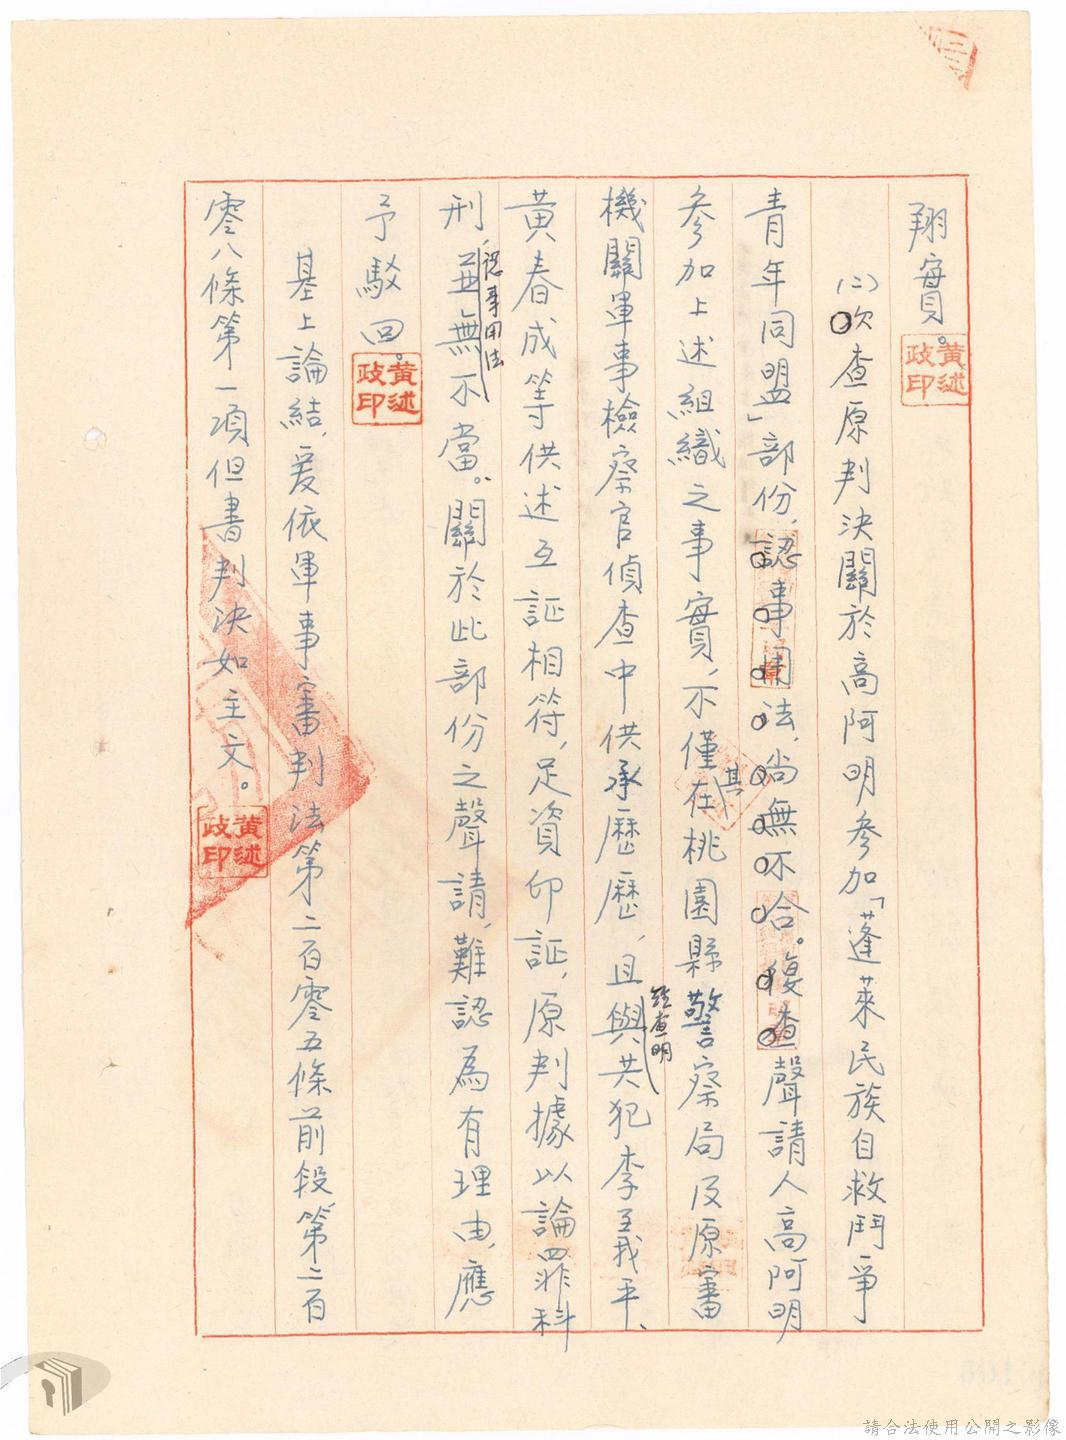 翔實。
(二)次查原判決關於高阿明參加「蓬萊民族自救鬥爭
青年同盟」部份，認事用法，尚無不合。復查聲請人高阿明
參加上述組織之事實，不僅其在桃園縣警察局及原審
機關軍事檢察官偵查中供承歷歷，且經查明與共犯李義平、
黃春成等供述互証相符，足資印証，原判據以論罪科
刑，認事用法並無不當。關於此部份之聲請，難認為有理由，應
予駁回。
基上論結，爰依軍事審判法第二百零五條前段、第二百
零八條第一項但書判決如主文。
黃述政印
黃述政印
黃述政印
請合法使用公開之影像